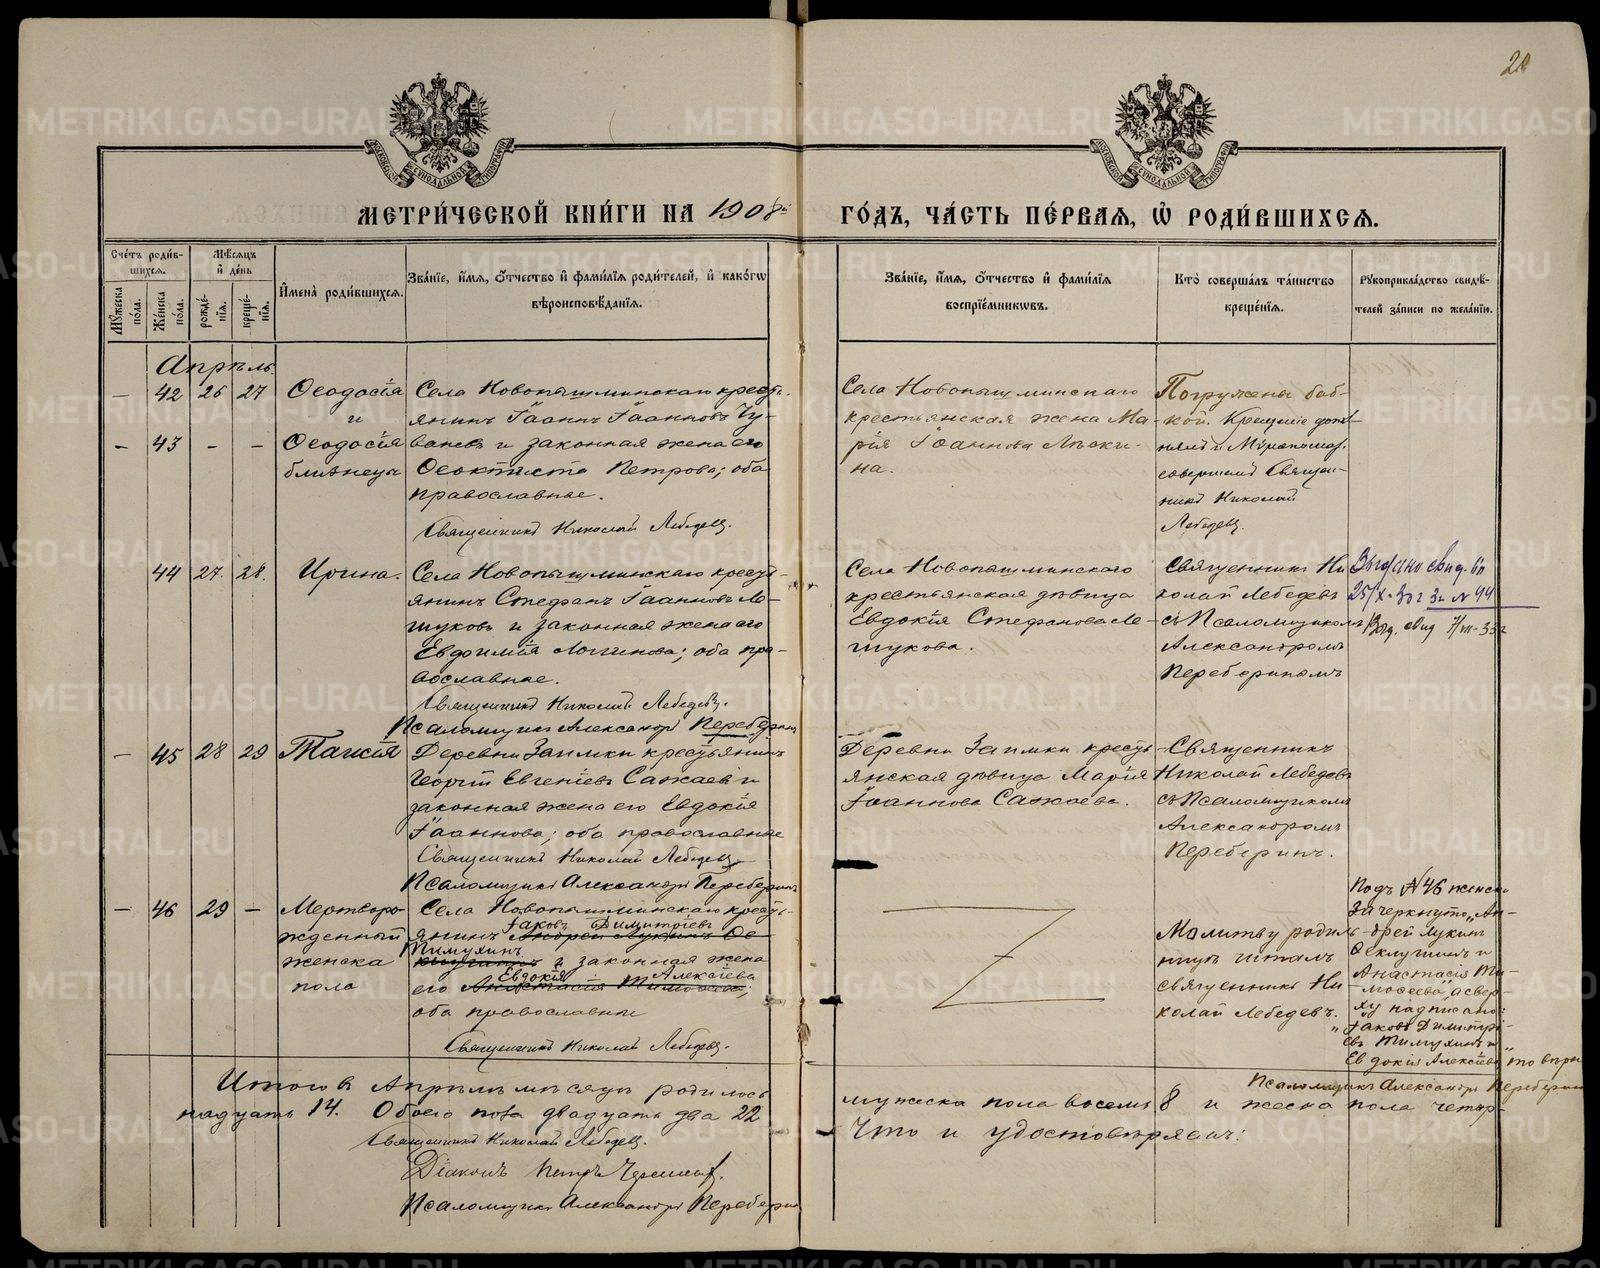 28
METRIKI.GASO-URAL.RU
МЕТРИ́ЧЕСКОЙ КНИ́ГИ НА 1908й ГО́ДЪ, ЧА́СТЬ ПЕ́РВАЯ, Ѽ РОДИ́ВШИХСѦ.
Сче́тъ роди́в-
шихсѧ.
Мѣ́сѧцъ
и҆ де́нь
Мꙋ́жеска
по́ла.
Же́нска
по́ла.
рожде́-
нїѧ.
креще́-
нїѧ.
И҆мена̀ роди́вшихсѧ.
Зва́нїе, и҆́мѧ, ѻ҆́тчество и҆ фами́лїѧ роди́телей, и҆ како́гѡ
вѣроисповѣ́данїѧ.
Зва́нїе, и҆́мѧ, ѻ҆́тчество и҆ фами́лїѧ
воспрїе́мникѡвъ.
Кто̀ соверша́лъ та́инство
креще́нїѧ.
Рꙋкоприкла́дство свидѣ́-
телей за́писи по жела́нїю.
Апрѣль.
— 42 26 27
Ѳеодосія
и
— 43 - -
Ѳеодосія
близнецы
Села Новопышминскаго кресть-
янинъ Іоаннъ Іоанновъ Чу-
ваевъ и законная жена его
Ѳеоктиста Петрова; оба
православные.
Священникъ Николай Лебедевъ.
Села Новопышминскаго
крестьянская жена Ма-
рія Іоаннова
на.
Погружены баб-
кой. Крещеніе допол-
нилъ и Мѵропомаз.
совершилъ Священ-
никъ Николай
Лебедевъ.
44 27. 28.
Ирина.
Села Новопышминскаго кресть-
янинъ Стефанъ Іоанновъ Ле-
шуковъ и законная жена его
Евдокія Логинова; оба пра-
вославные.
Священникъ Николай Лебедевъ.
Псаломщикъ Александръ Переберинъ
Села Новопышминскаго
крестьянская дѣвица
Евдокія Стефанова Ле-
шукова.
Священникъ Ни-
колай Лебедевъ
съ Псаломщикомъ
Александромъ
Переберинымъ
Выдано свид. в п
25/X-30 г за № 44
Выд. свид 7/VII-33 г
— 45 28 29
Таисія
Деревни Заимки крестьянинъ
Георгій Евгеніевъ Сажаевъ и
законная жена его Евдокія
Іоаннова; оба православные
Священникъ Николай Лебедевъ
Псаломщикъ Александръ Переберинъ
Деревни Заимки кресть-
янская дѣвица Марія
Іоаннова Сажаева.
Священникъ
Николай Лебедевъ
съ Псаломщикомъ
Александромъ
Переберинъ.
— 46 29 —
Мертворо-
жденный
женска
пола
Села Новопышминскаго кресть-
Іаковъ Димитріевъ
янинъ Андрей Лукинъ Ѳе-
Тимухинъ
и законная жена
Евдокія Алексіева
его Анастасія Тимоѳеева;
оба православные
Священникъ Николай Лебедевъ.
Молитву родиль-
ницѣ читалъ
священникъ Ни-
колай Лебедевъ.
Подъ № 46 женск.
зачеркнуто „Ан-
дрей Лукинъ
и
Анастасія Ти-
моѳеева", а свер-
ху надписано:
„Іаковъ Димитрі-
евъ Тимухинъ и
Евдокія Алексіева" то вѣрно
Псаломщикъ Александръ Переберинъ
Итого въ Апрѣлѣ мѣсяцѣ родилось мужска пола восемь 8 и женска пола четыр-
надцать 14. Обоего пола двадцать два 22 Что и удостовѣряемъ:
Священникъ Николай Лебедевъ.
Діаконъ Петръ
Псаломщикъ Александръ Переберинъ